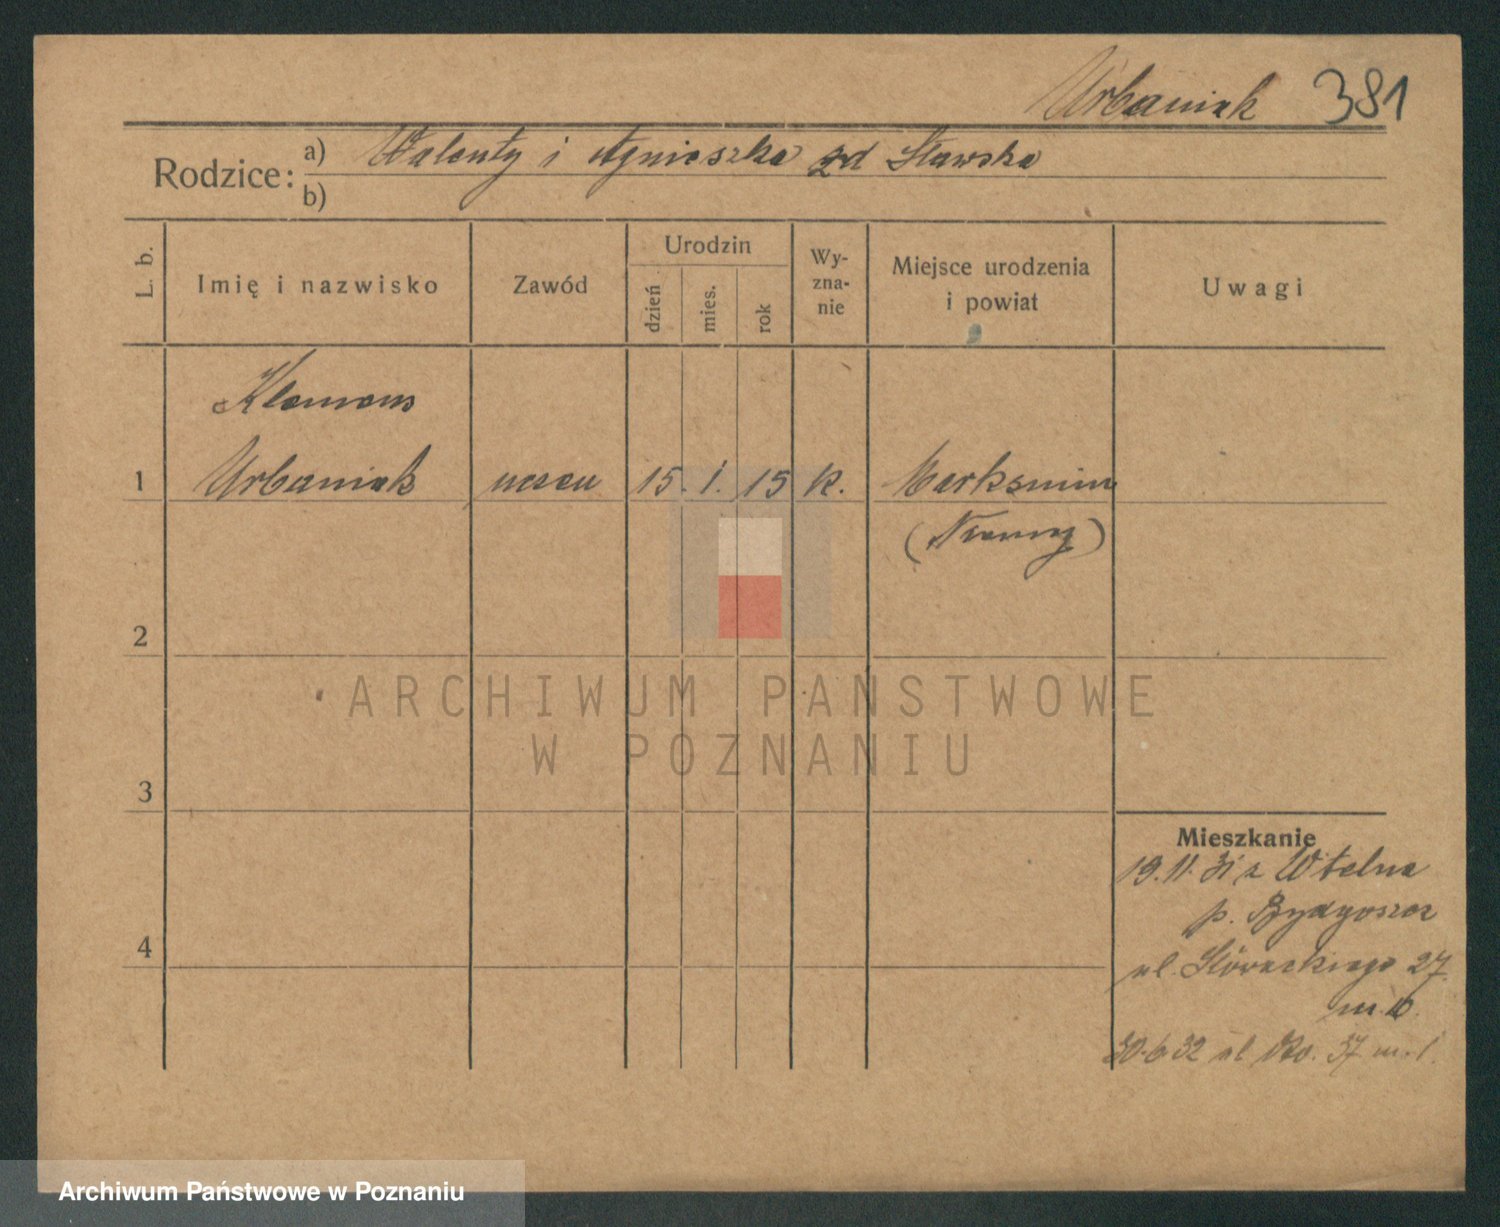 Urbaniak 381
Rodzice: a) Walenty i Agnieszka zd Sławska
b)
L. b.
Imię i nazwisko
Zawód
Urodzin
dzień
mies.
rok
Wy-
zna-
nie
Miejsce urodzenia
i powiat
Uwagi
Klemens
1 Urbaniak uczeń 15. 1. 15 k.
(Niemcy)
2
3
4
ARCHIWUM PAŃSTWOWE
W POZNANIU
Mieszkanie
19.11.31 z Wtelna
p. Bydgoszcz
ul. Słowackiego 27
m.
30.6 32 ul 37 m. 1.
Archiwum Państwowe w Poznaniu